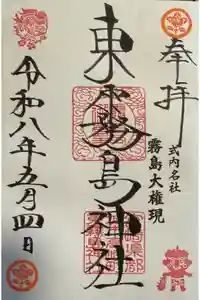 奉拝
式内名社
霧島大権現
東霧島神社
令和八年五月四日